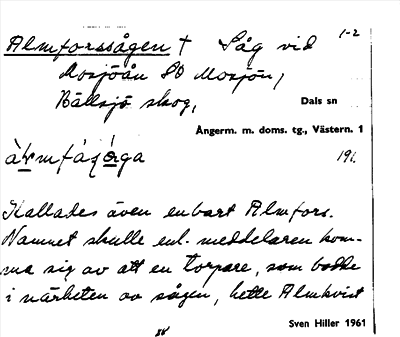 Almforssågen † Såg vid 1-2
Mosjöån SO Mosjön,
Bällsjö skog, Dals sn
Ångerm. m. doms. tg., Västern. 1
191.
Kallades även enbart Almfors.
Namnet skulle enl. meddelaren kom-
ma sig av att en torpare, som bodde
i närheten av sågen, hette Almkvist
Sven Hiller 1961